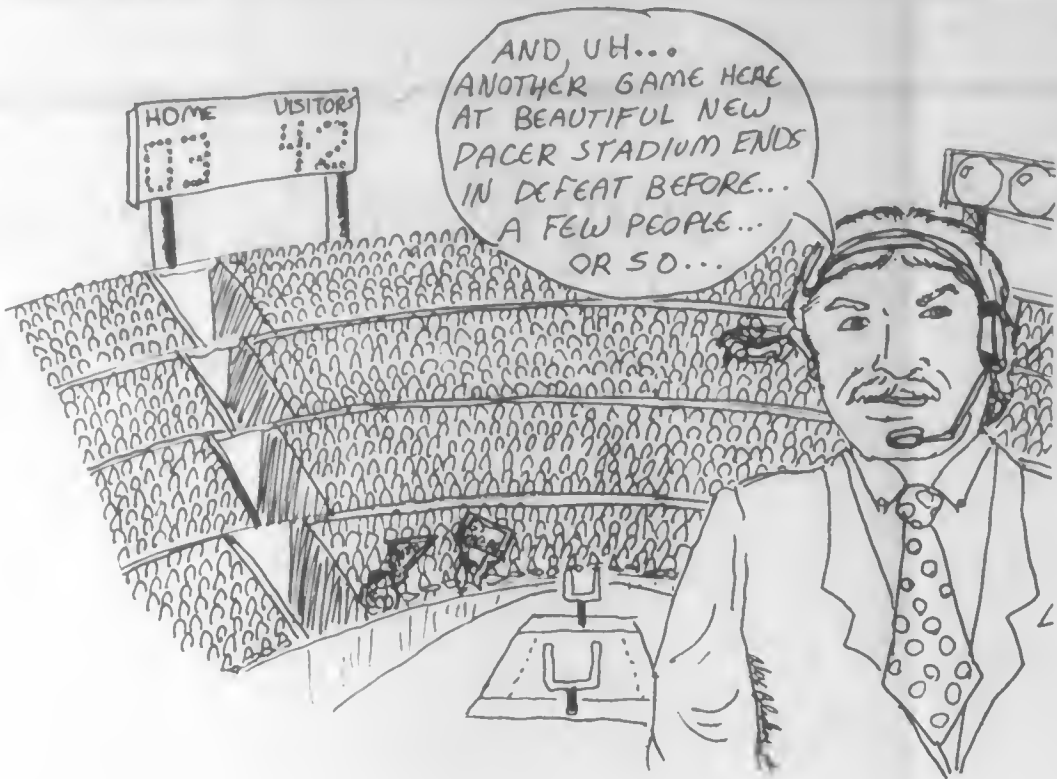 HOME VISITORS
03 42
AND, UH...
ANOTHER GAME HERE
AT BEAUTIFUL NEW
PACER STADIUM ENDS
IN DEFEAT BEFORE...
A FEW PEOPLE...
OR SO...